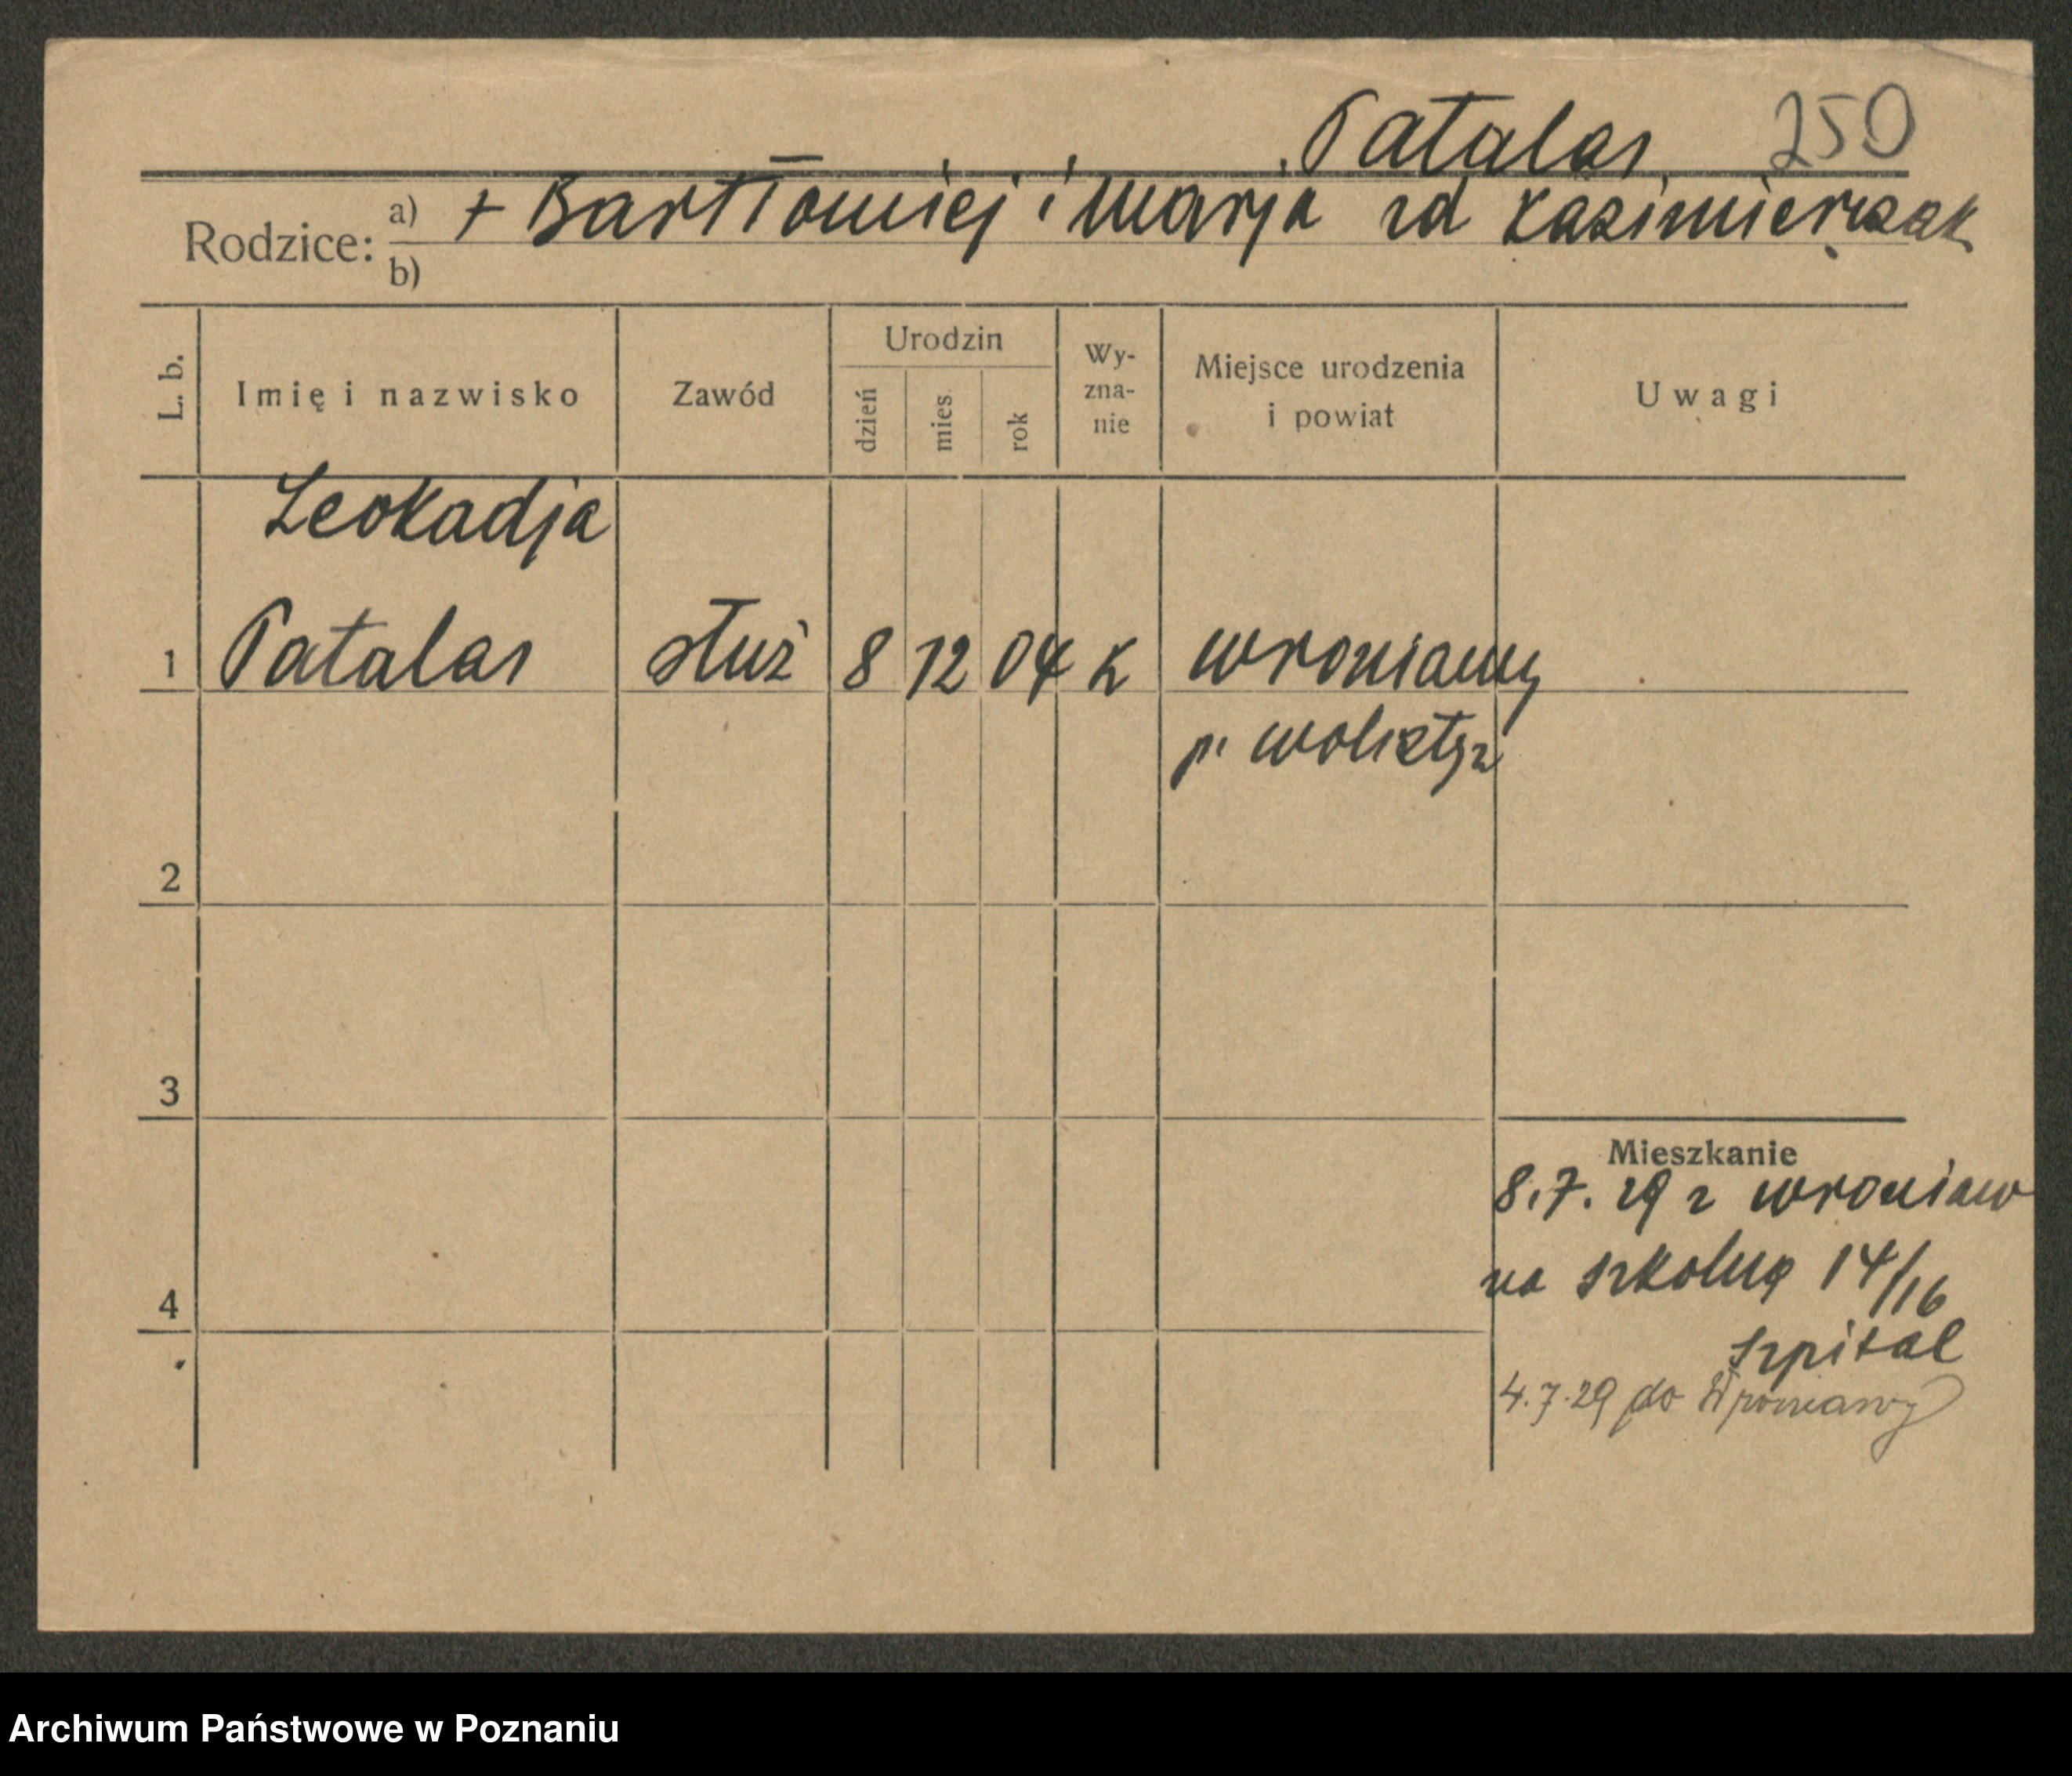 Patalas 250
Rodzice: a) + Bartłomiej i Marja zd Kazimierczak
b)
L. b. Imię i nazwisko Zawód Urodzin dzień mies. rok Wy-zna-nie Miejsce urodzenia i powiat Uwagi
Leokadja
1 Patalas służ 8 12 04 K Wroniawy
p. Wolsztyn
2
3
Mieszkanie
8.7.29 z Wroniaw
na Szkolną 14/16
4
szpital
4.7.29 do Wroniawy
Archiwum Państwowe w Poznaniu